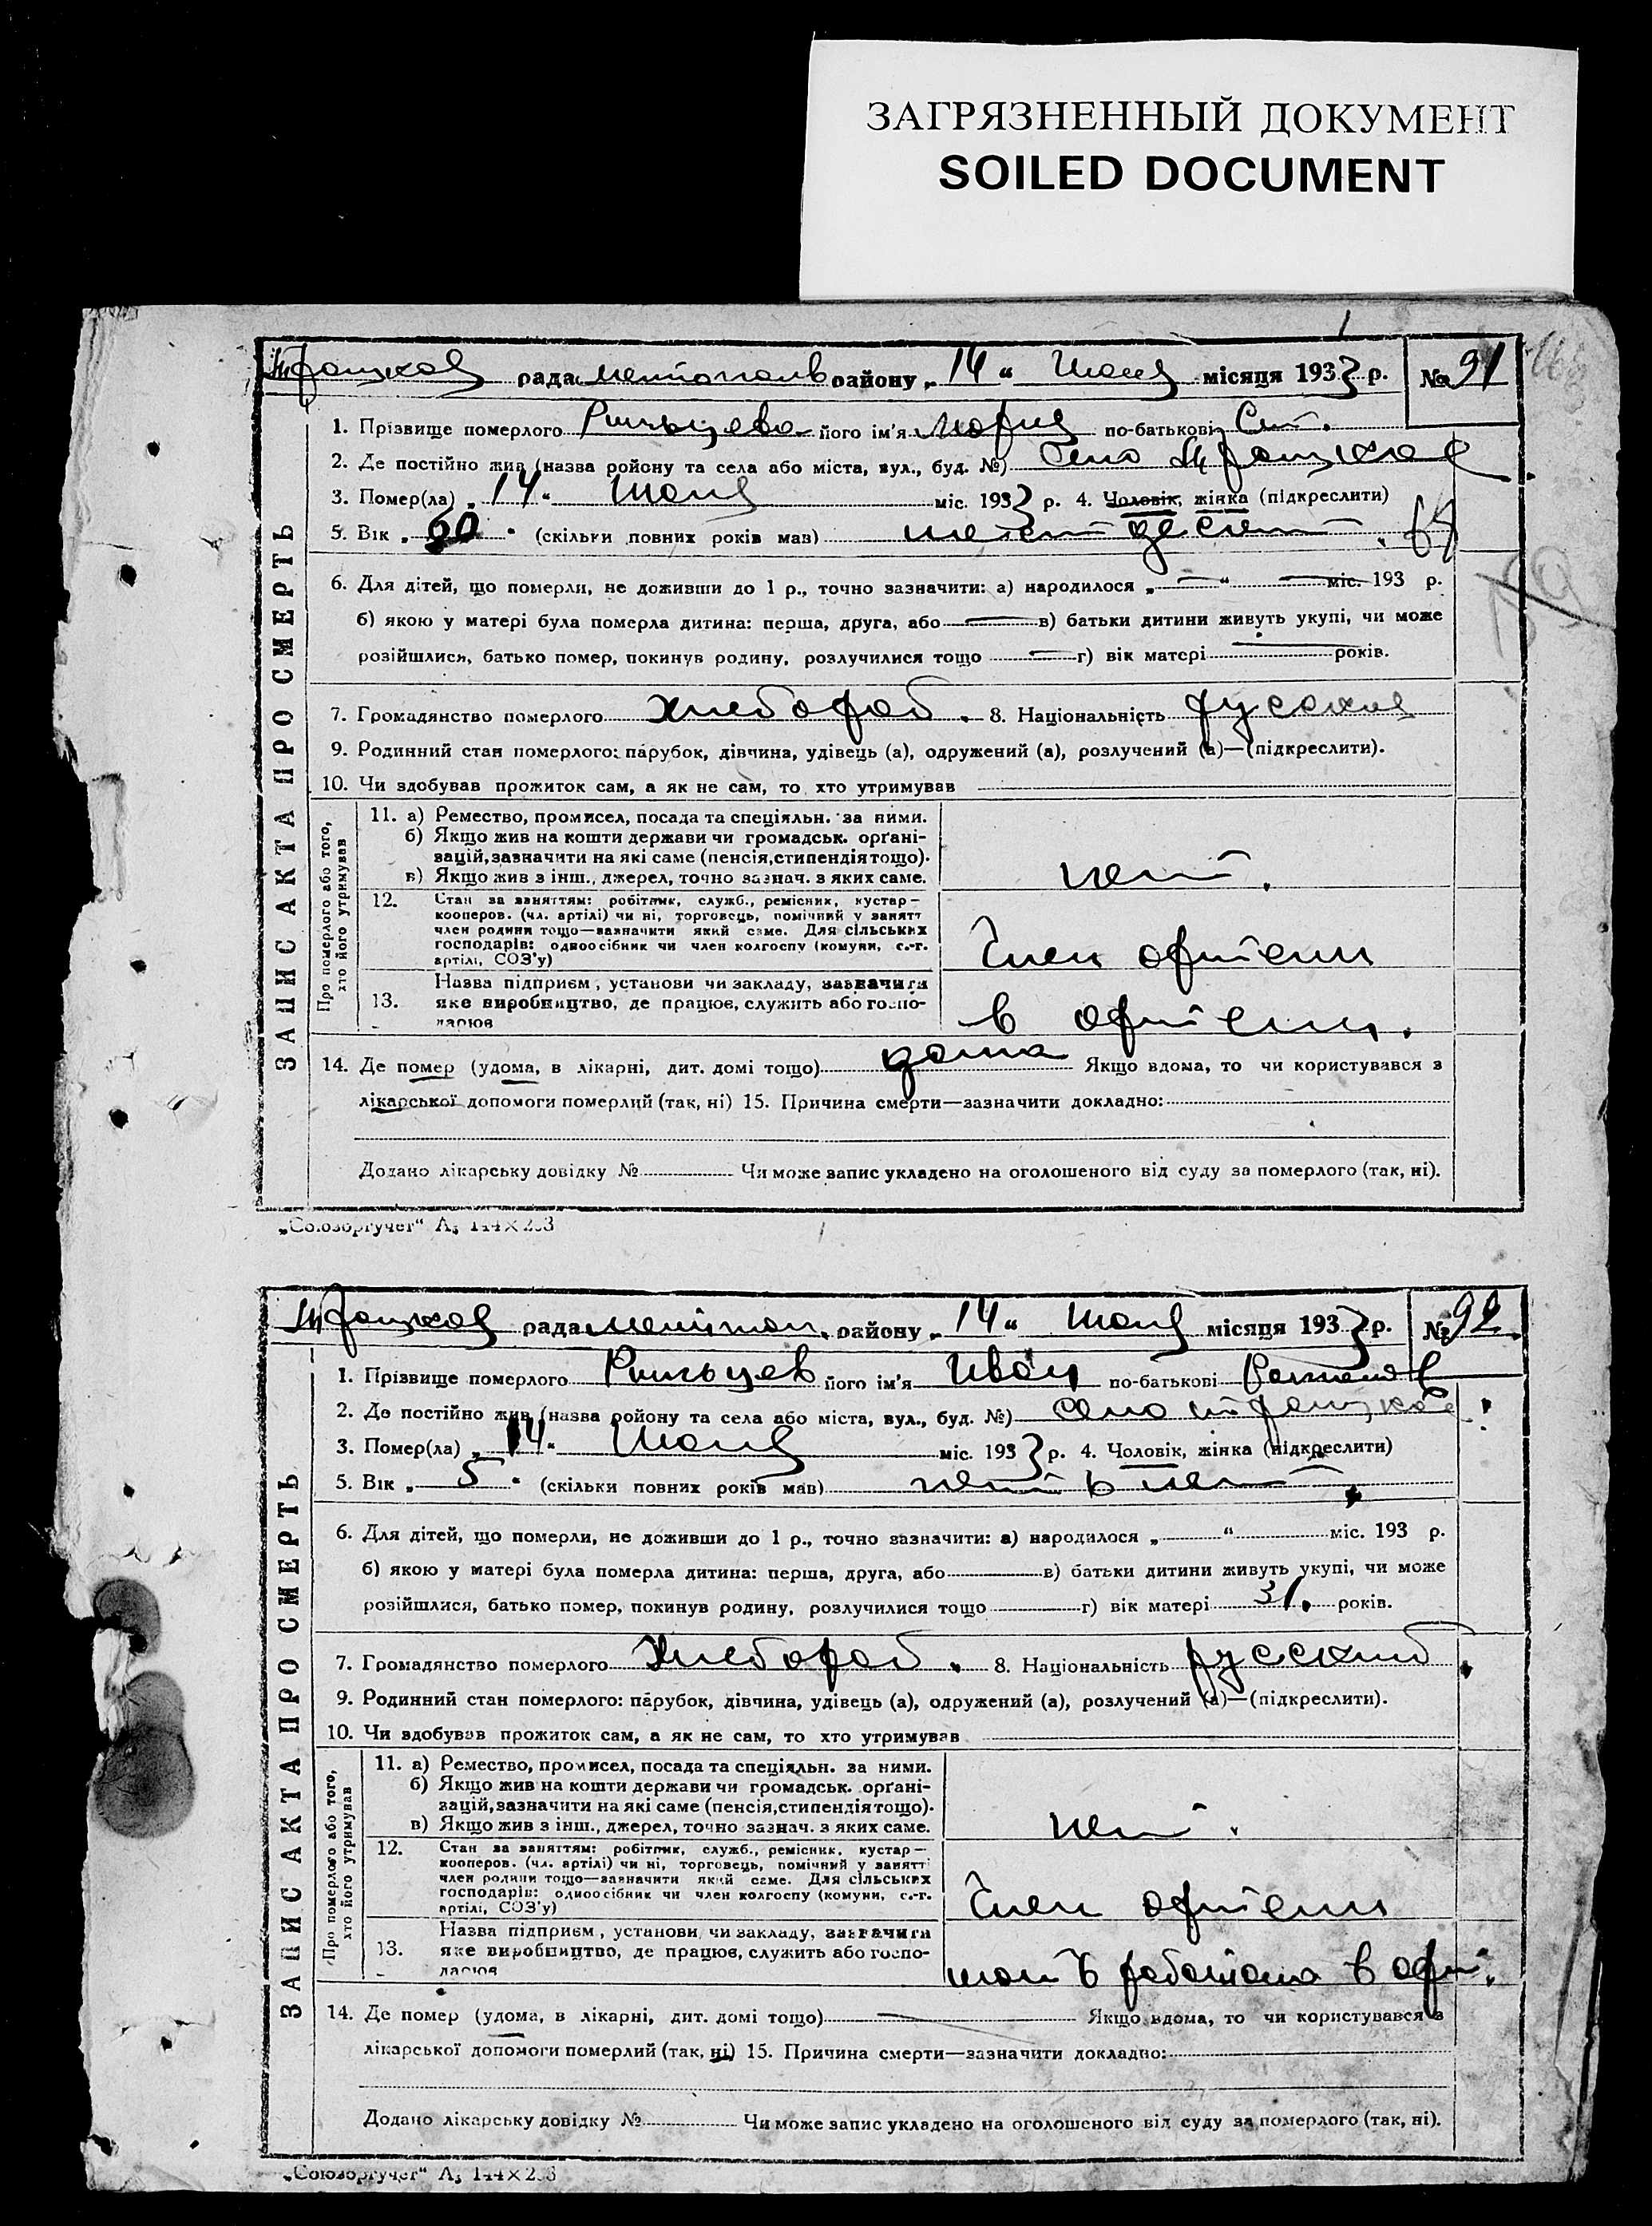 ЗАГРЯЗНЕННЫЙ ДОКУМЕНТ
SOILED DOCUMENT
рада району „14“ місяця 1933 р. № 91
1. Прізвище померлого його ім'я Мария по-батькові
2. Де постійно жив (назва ройону та села або міста, вул., буд. №) Село
3. Помер(ла) „14“ міс. 1933 р. 4. Чоловік, жінка (підкреслити)
5. Вік „60“ (скільки повних років мав)
6. Для дітей, що померли, не доживши до 1 р., точно зазначити: а) народилося „—“ — міс. 193 р.
б) якою у матері була померла дитина: перша, друга, або — в) батьки дитини живуть укупі, чи може
розійшлися, батько помер, покинув родину, розлучилися тощо — г) вік матері — років.
7. Громадянство померлого хлебороб. 8. Національність русская
9. Родинний стан померлого: парубок, дівчина, удівець (а), одружений (а), розлучений (а)—(підкреслити).
10. Чи здобував прожиток сам, а як не сам, то хто утримував
ЗАПИС АКТА ПРО СМЕРТЬ
Про померлого або того, хто його утримував
11. а) Ремество, промисел, посада та спеціяльн. за ними.
б) Якщо жив на кошти держави чи громадськ. орґані-
зацій, зазначити на які саме (пенсія, стипендія тощо).
в) Якщо жив з інш., джерел, точно зазнач. з яких саме.
нет.
12. Стан за заняттям: робітник, служб., ремісник, кустар—
кооперов. (чл. артілі) чи ні, торговець, помічний у занятт
член родини тощо—зазначити який саме. Для сільських
господарів: одноосібник чи член колгоспу (комуни, с.-г.
артілі, СОЗ'у)
Член артели
13. Назва підприєм, установи чи закладу, зазначити
яке виробництво, де працює, служить або госпо-
дарює
в артели.
14. Де помер (удома, в лікарні, дит. домі тощо) дома Якщо вдома, то чи користувався з
лікарської допомоги померлий (так, ні) 15. Причина смерти—зазначити докладно:
Додано лікарську довідку № Чи може запис укладено на оголошеного від суду за померлого (так, ні).
„Союзоргучет“ А₅ 144×203
рада району „14“ місяця 1933 р. № 92.
1. Прізвище померлого його ім'я Иван по-батькові
2. Де постійно жив (назва ройону та села або міста, вул., буд. №) село
3. Помер(ла) „14“ міс. 1933 р. 4. Чоловік, жінка (підкреслити)
5. Вік „5“ (скільки повних років мав) пять лет
6. Для дітей, що померли, не доживши до 1 р., точно зазначити: а) народилося „ “ міс. 193 р.
б) якою у матері була померла дитина: перша, друга, або в) батьки дитини живуть укупі, чи може
розійшлися, батько помер, покинув родину, розлучилися тощо г) вік матері 31. років.
7. Громадянство померлого Хлебороб. 8. Національність русский
9. Родинний стан померлого: парубок, дівчина, удівець (а), одружений (а), розлучений (а)—(підкреслити).
10. Чи здобував прожиток сам, а як не сам, то хто утримував
ЗАПИС АКТА ПРО СМЕРТЬ
Про померлого або того, хто його утримував
11. а) Ремество, промисел, посада та спеціяльн. за ними.
б) Якщо жив на кошти держави чи громадськ. орґані-
зацій, зазначити на які саме (пенсія, стипендія тощо).
в) Якщо жив з інш., джерел, точно зазнач. з яких саме.
нет.
12. Стан за заняттям: робітник, служб., ремісник, кустар—
кооперов. (чл. артілі) чи ні, торговець, помічний у занятті
член родини тощо—зазначити який саме. Для сільських
господарів: одноосібник чи член колгоспу (комуни, с.-г.
артілі, СОЗ'у)
Член артели
13. Назва підприєм, установи, чи закладу, зазначити
яке виробництво, де працює, служить або госпо-
дарює
мать работала в арт.
14. Де помер (удома, в лікарні, дит. домі тощо) Якщо вдома, то чи користувався з
лікарської допомоги померлий (так, ні) 15. Причина смерти—зазначити докладно:
Додано лікарську довідку № Чи може запис укладено на оголошеного від суду за померлого (так, ні).
„Союзоргучет“ А₅ 144×203